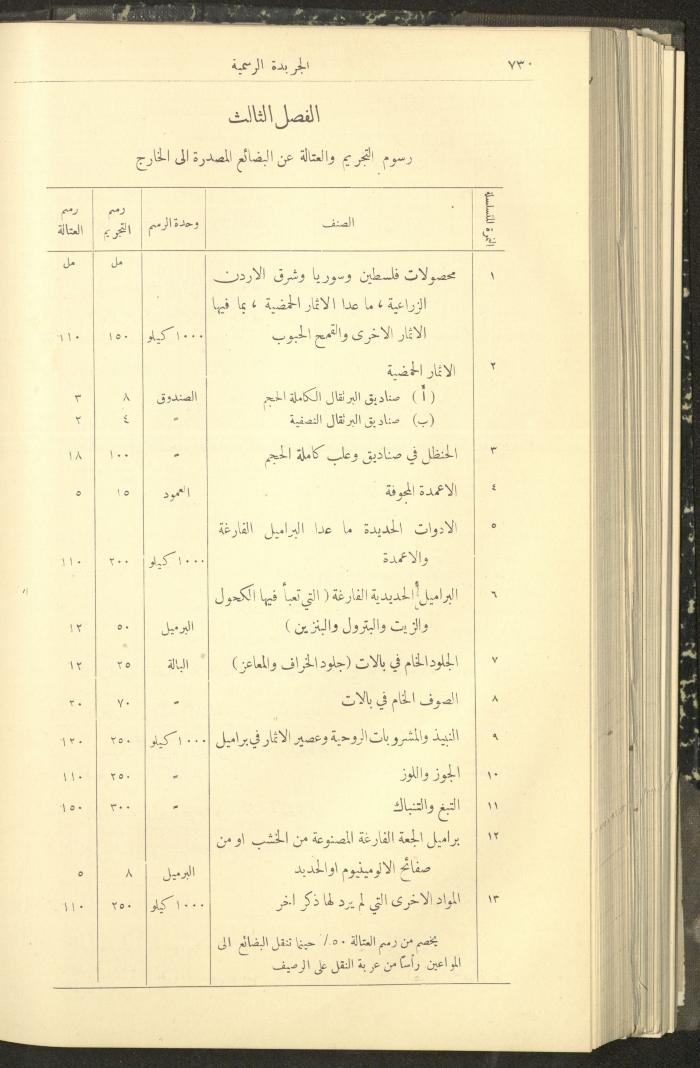 ٧٣٠ الجريدة الرسمية
الفصل الثالث
رسوم التجريم والعتالة عن البضائع المصدرة الى الخارج
النمرة المتسلسلة الصنف وحدة الرسم رسم التجريم رسم العتالة
مل مل
١ محصولات فلسطين وسوريا وشرق الاردن
الزراعية ، ما عدا الاثمار الحمضية ، بما فيها
الاثمار الاخرى والقمح الحبوب ١٠٠٠ كيلو ١٥٠ ١١٠
٢ الاثمار الحمضية
(أ) صناديق البرتقال الكاملة الحجم الصندوق ٨ ٣
(ب) صناديق البرتقال النصفية " ٤ ٢
٣ الحنظل في صناديق وعلب كاملة الحجم " ١٠٠ ١٨
٤ الاعمدة المجوفة العمود ١٥ ٥
٥ الادوات الحديدة ما عدا البراميل الفارغة
والاعمدة ١٠٠٠ كيلو ٢٠٠ ١١٠
٦ البراميل الحديدية الفارغة ( التي تعبأ فيها الكحول
والزيت والبترول والبنزين ) البرميل ٥٠ ١٢
٧ الجلود الخام في بالات (جلود الخراف والمعاعز) البالة ٢٥ ١٢
٨ الصوف الخام في بالات " ٧٠ ٢٠
٩ النبيذ والمشروبات الروحية وعصير الاثمار في براميل ١٠٠٠ كيلو ٢٥٠ ١٢٠
١٠ الجوز واللوز " ٢٥٠ ١١٠
١١ التبغ والتنباك " ٣٠٠ ١٥٠
١٢ براميل الجعة الفارغة المصنوعة من الخشب او من
صفائح الالومينيوم او الحديد البرميل ٨ ٥
١٣ المواد الاخرى التي لم يرد لها ذكر اخر ١٠٠٠ كيلو ٢٥٠ ١١٠
يخصم من رسم العتالة ٥٠٪ حينما تنقل البضائع الى
المواعين رأسا من عربة النقل على الرصيف